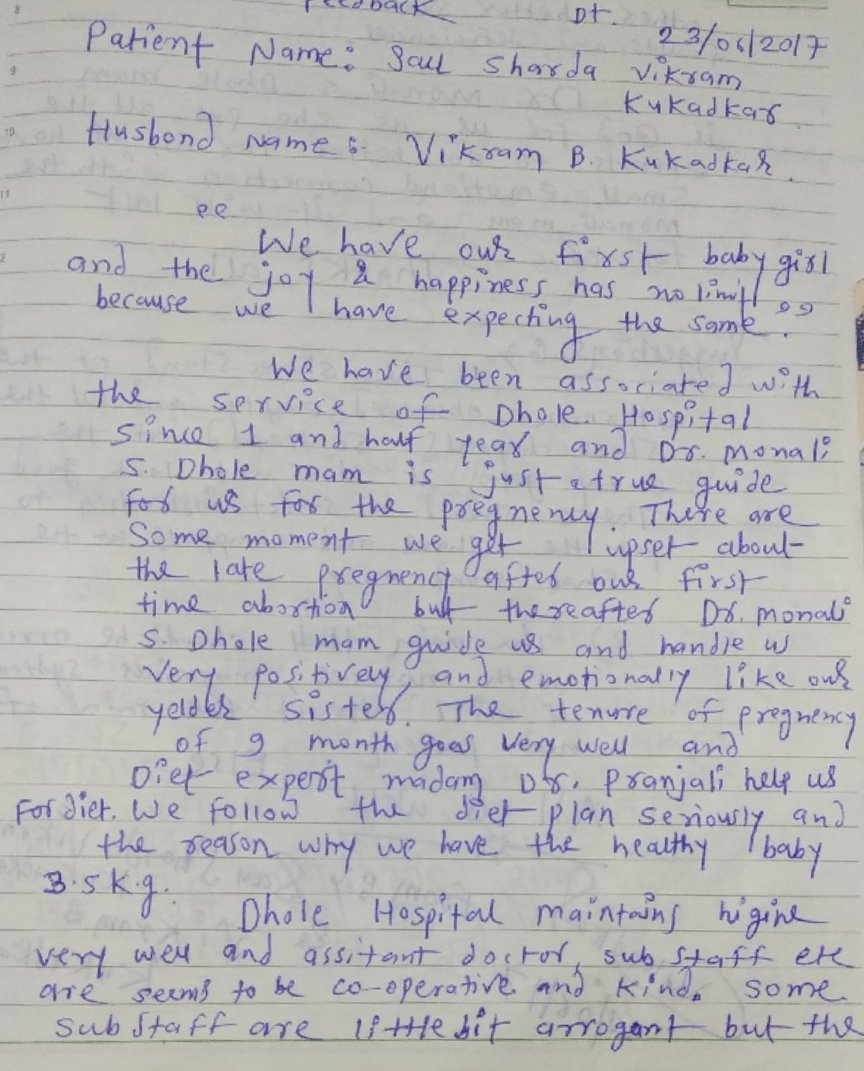 Feedback
Dt.
23/06/2017
Patient Name: Sau Sharda Vikram
Kukadkar
Husbond Name: Vikram B. Kukadkar.
"
We have our first baby girl
and the joy & happiness has no limit
because we have expecting the same."
We have been associated with
the service of Dhole Hospital
Since 1 and half year and Dr. Monali
S. Dhole mam is just a true guide
for us for the pregnency. There are
Some moment we get upset about
the late pregnency after our first
time abortion but thereafter Dr. Monali
S. Dhole mam guide us and handle us
Very positively, and emotionally like our
yelder Sister. The tenure of pregnency
of 9 month goes very well and
Diet expert madam Dr. Pranjali help us
For diet. We follow the diet plan seriously and
the reason why we have the healthy baby
3.5 K.g.
Dhole Hospital maintains higine
very well and assitant doctor, sub staff etc
are seems to be co-operative and kind. Some
Sub staff are little bit arrogant but the